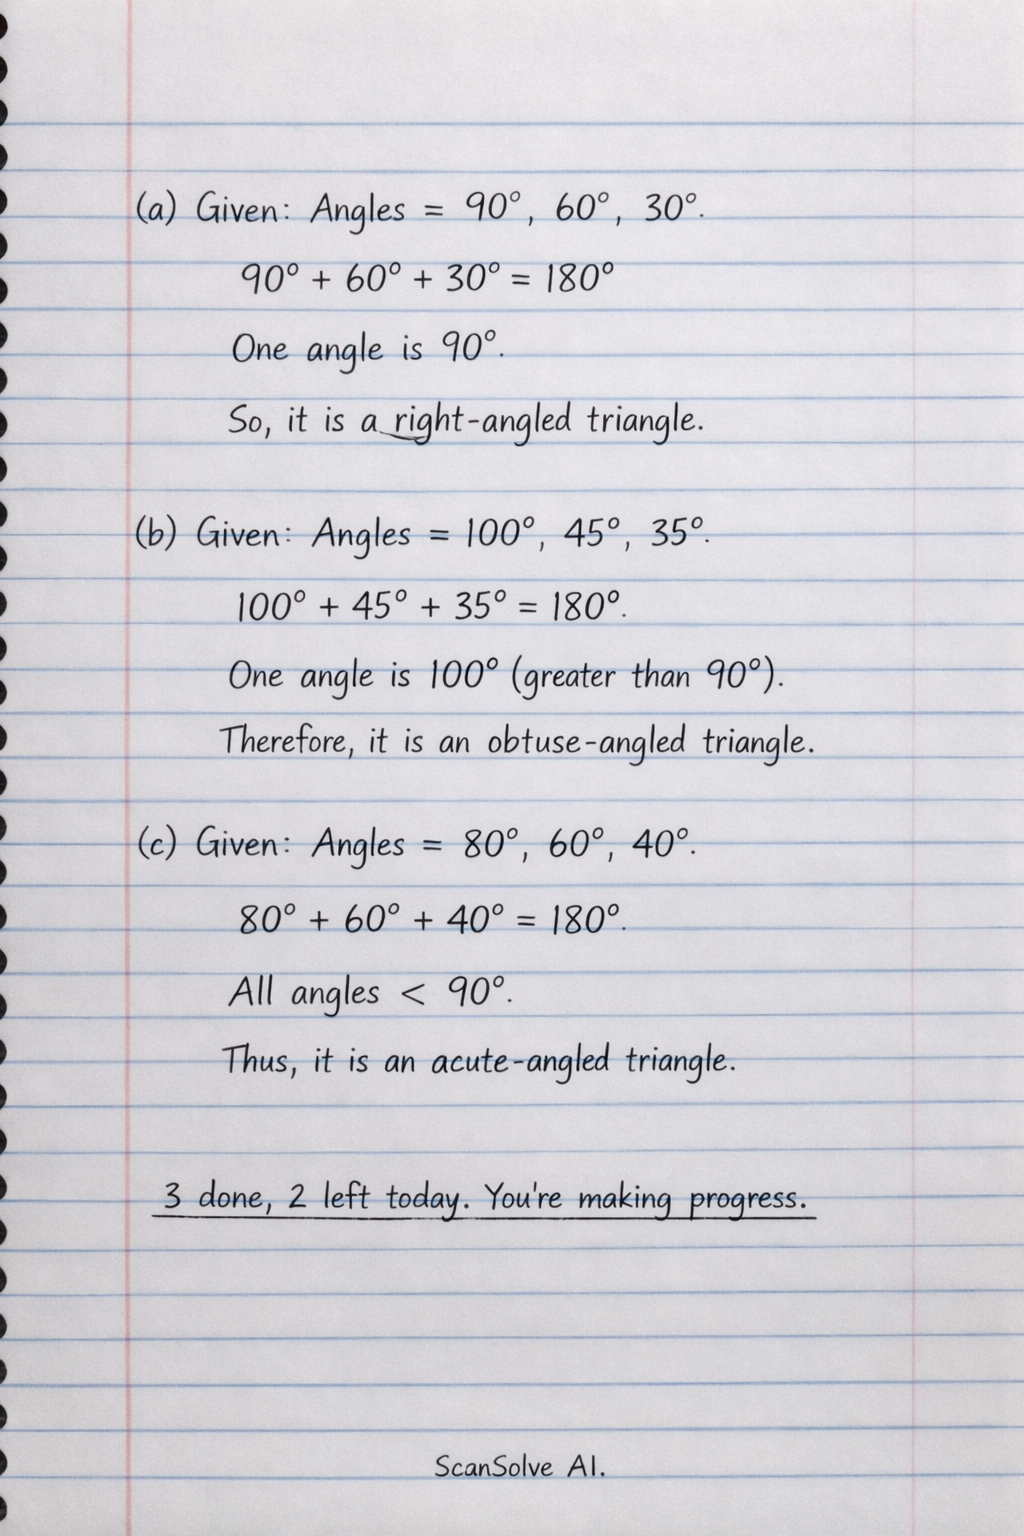 (a) Given: Angles = 90°, 60°, 30°.
90° + 60° + 30° = 180°
One angle is 90°.
So, it is a right-angled triangle.
(b) Given: Angles = 100°, 45°, 35°.
100° + 45° + 35° = 180°.
One angle is 100° (greater than 90°).
Therefore, it is an obtuse-angled triangle.
(c) Given: Angles = 80°, 60°, 40°.
80° + 60° + 40° = 180°.
All angles < 90°.
Thus, it is an acute-angled triangle.
3 done, 2 left today. You're making progress.
ScanSolve AI.